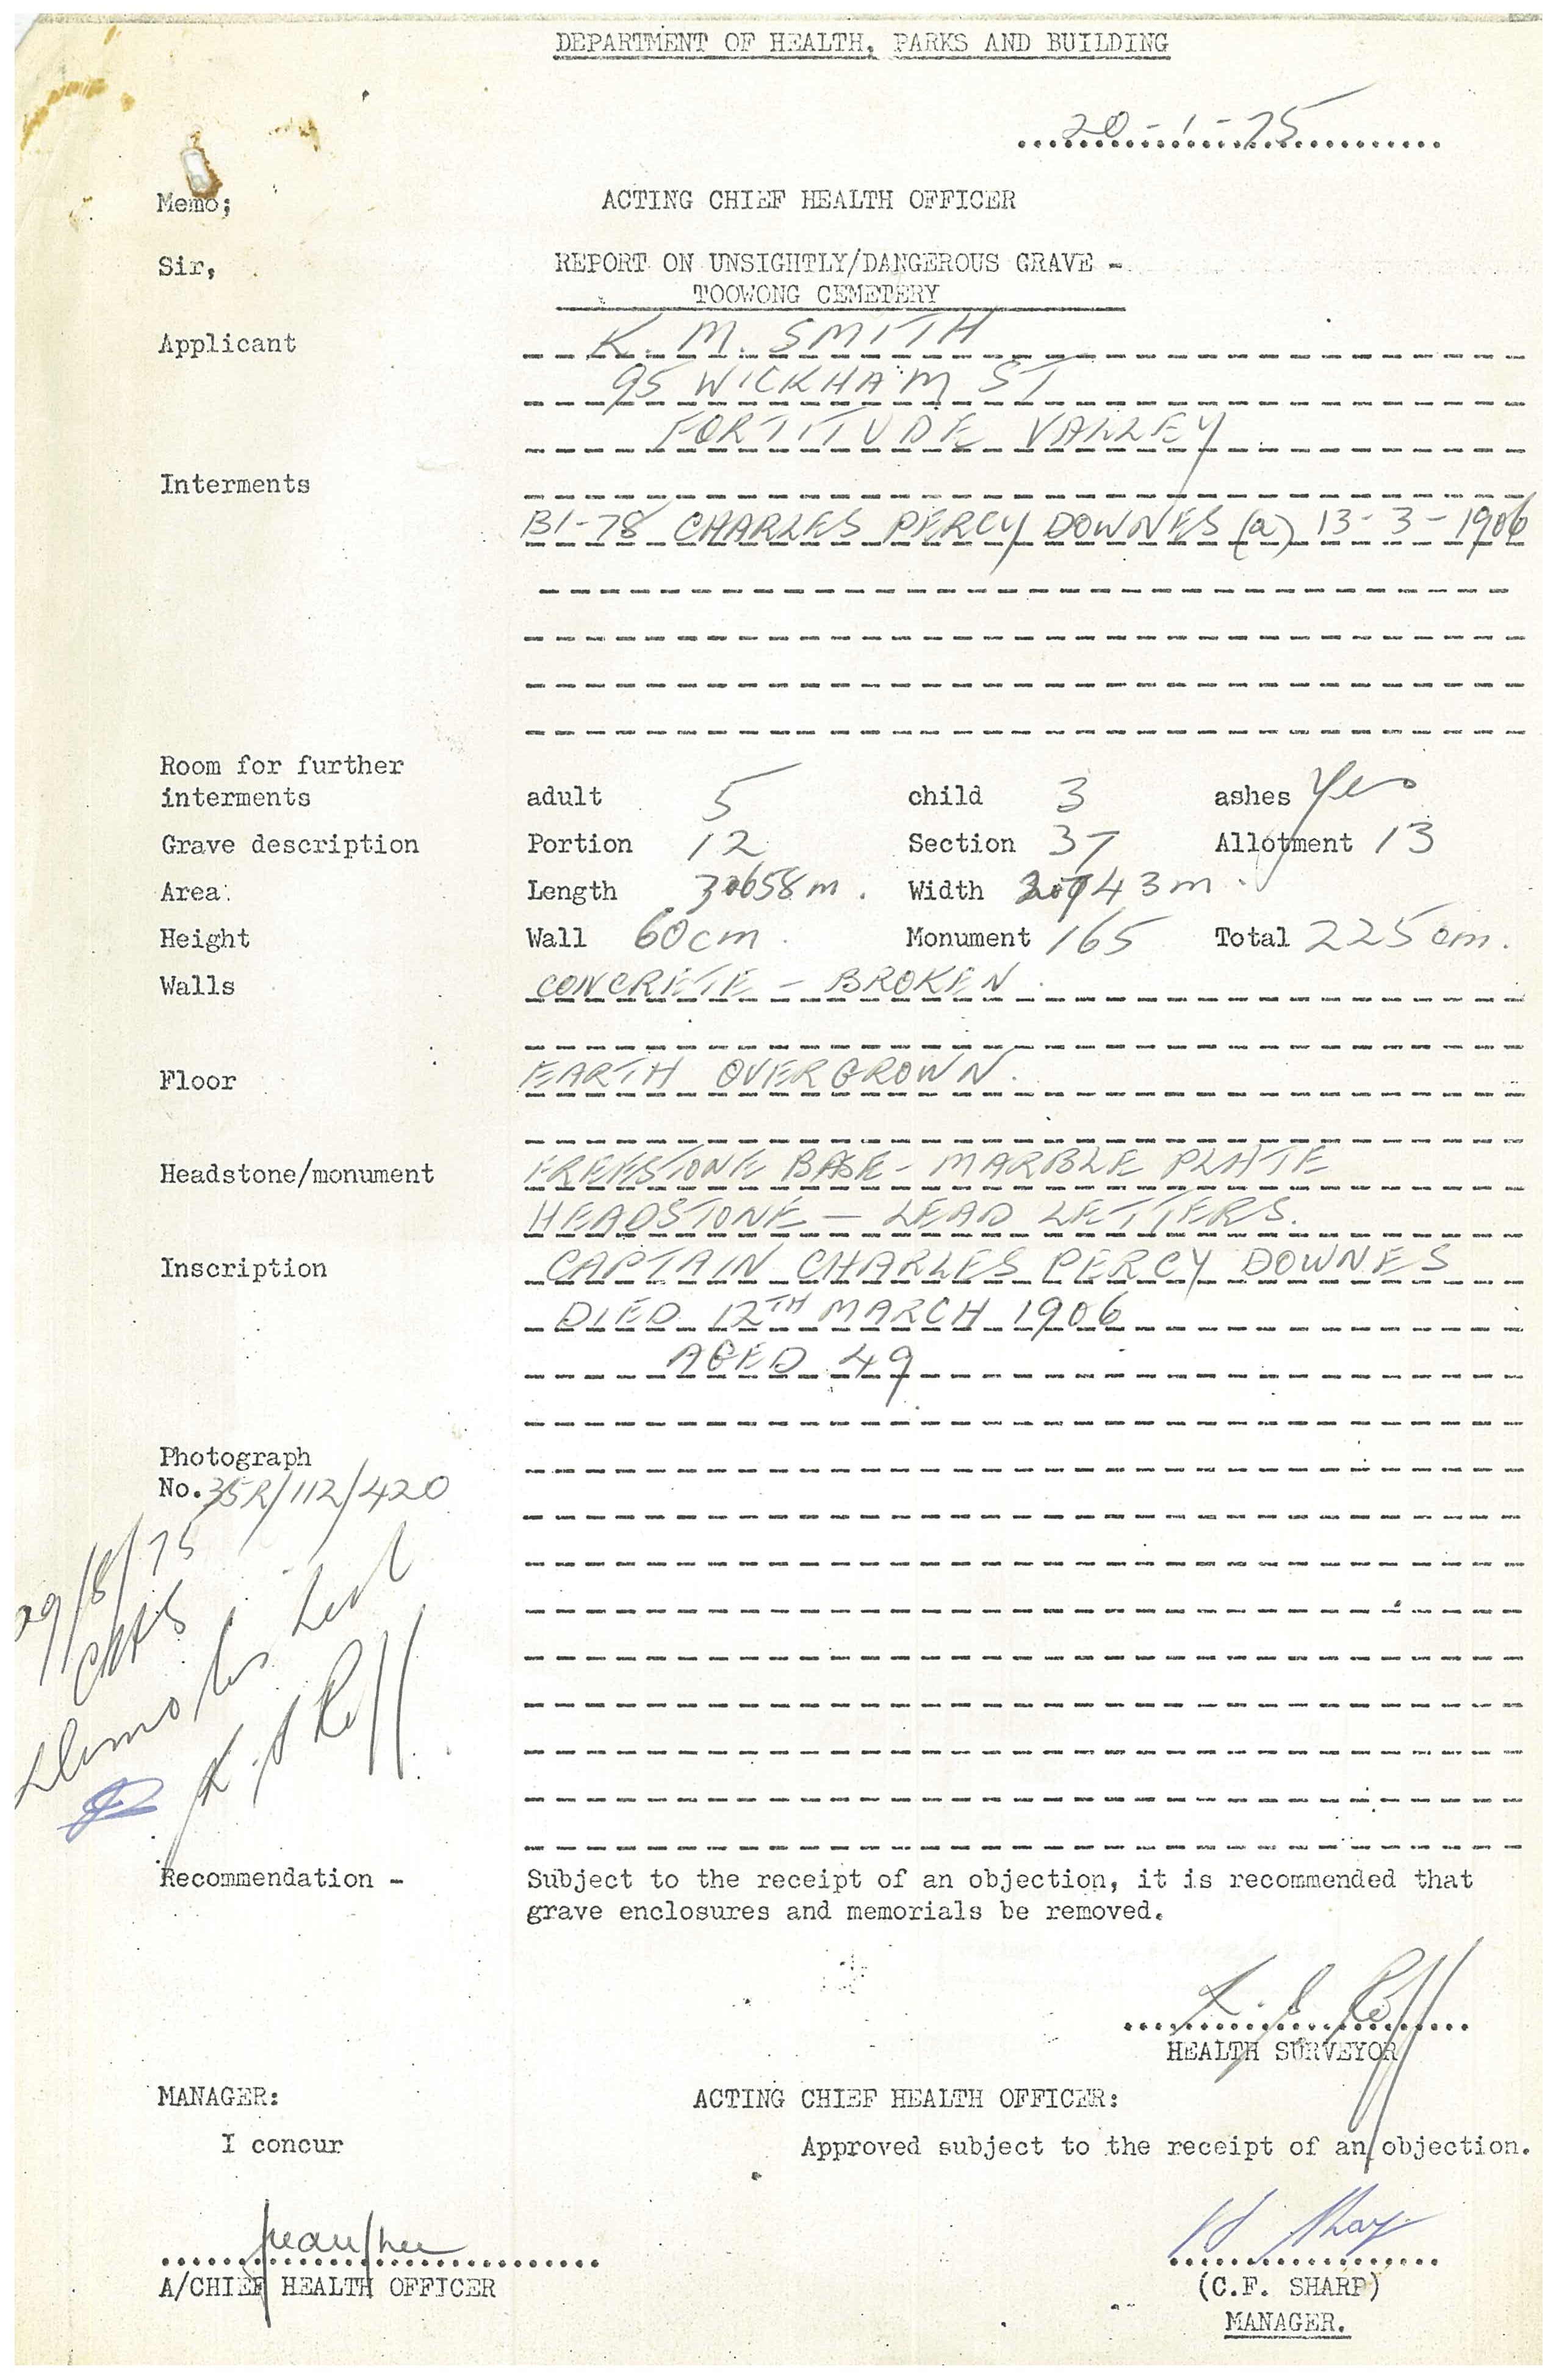 DEPARTMENT OF HEALTH, PARKS AND BUILDING
20-1-75
Memo; ACTING CHIEF HEALTH OFFICER
Sir, REPORT ON UNSIGHTLY/DANGEROUS GRAVE -
TOOWONG CEMETERY
Applicant K. M. SMITH
95 WICKHAM ST
FORTITUDE VALLEY
Interments
B1-78 CHARLES PERCY DOWNES (a) 13-3-1906
Room for further
interments adult 5 child 3 ashes Yes
Grave description Portion 12 Section 37 Allotment 13
Area: Length 3.658m. Width 2.743m.
Height Wall 60cm. Monument 165 Total 225cm.
Walls CONCRETE - BROKEN.
Floor EARTH OVERGROWN.
Headstone/monument FREESTONE BASE - MARBLE PLATE
HEADSTONE - LEAD LETTERS.
Inscription CAPTAIN CHARLES PERCY DOWNES
DIED 12TH MARCH 1906
AGED 49
Photograph
No. 35R/112/420
29/8/75
Recommendation - Subject to the receipt of an objection, it is recommended that
grave enclosures and memorials be removed.
HEALTH SURVEYOR
MANAGER: ACTING CHIEF HEALTH OFFICER:
I concur Approved subject to the receipt of an objection.
A/CHIEF HEALTH OFFICER (C.F. SHARP)
MANAGER.